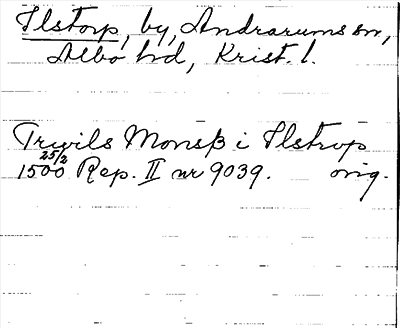 Ilstorp, by, Andrarums sn,
Albo hd, Krist. l.
Truils Monsß i Ilstrop
1500 25/2 Rep. II nr 9039. orig.